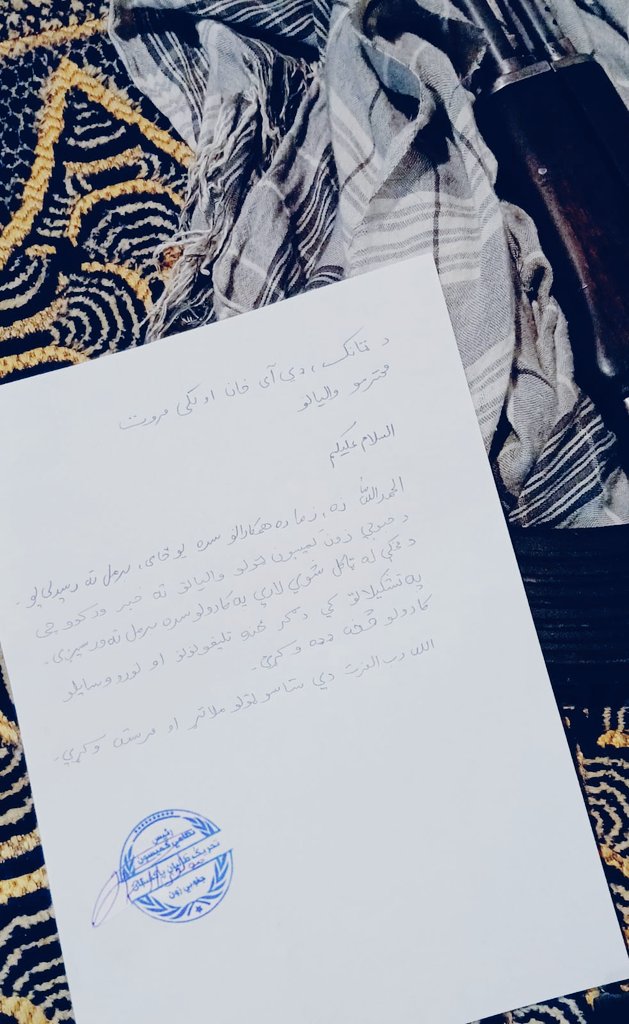 د ټانک، ډي آی خان او لکي مروت
محترمو واليانو
السلام عليکم
الحمدالله زه، زما ده همکارانو سره يو ځای، مرمل ته رسيدلي يو.
د جنوبي زون نصيبون ټولو واليانو ته خبر ورکوو چي
د مخکي له ټاکل شوي لاري په کارولو سره مرمل ته ورسيږي.
په تشکيلاتو کي د مخه تليفونونو او نورو وسايلو
کارولو څخه ډډه وکړي.
الله رب العزت دي ستاسو ټولو ملاتړ او مرسته وکړي.
رئيس
نظامي کميسون
تحريک طالبان پاکستان
جنوبي زون